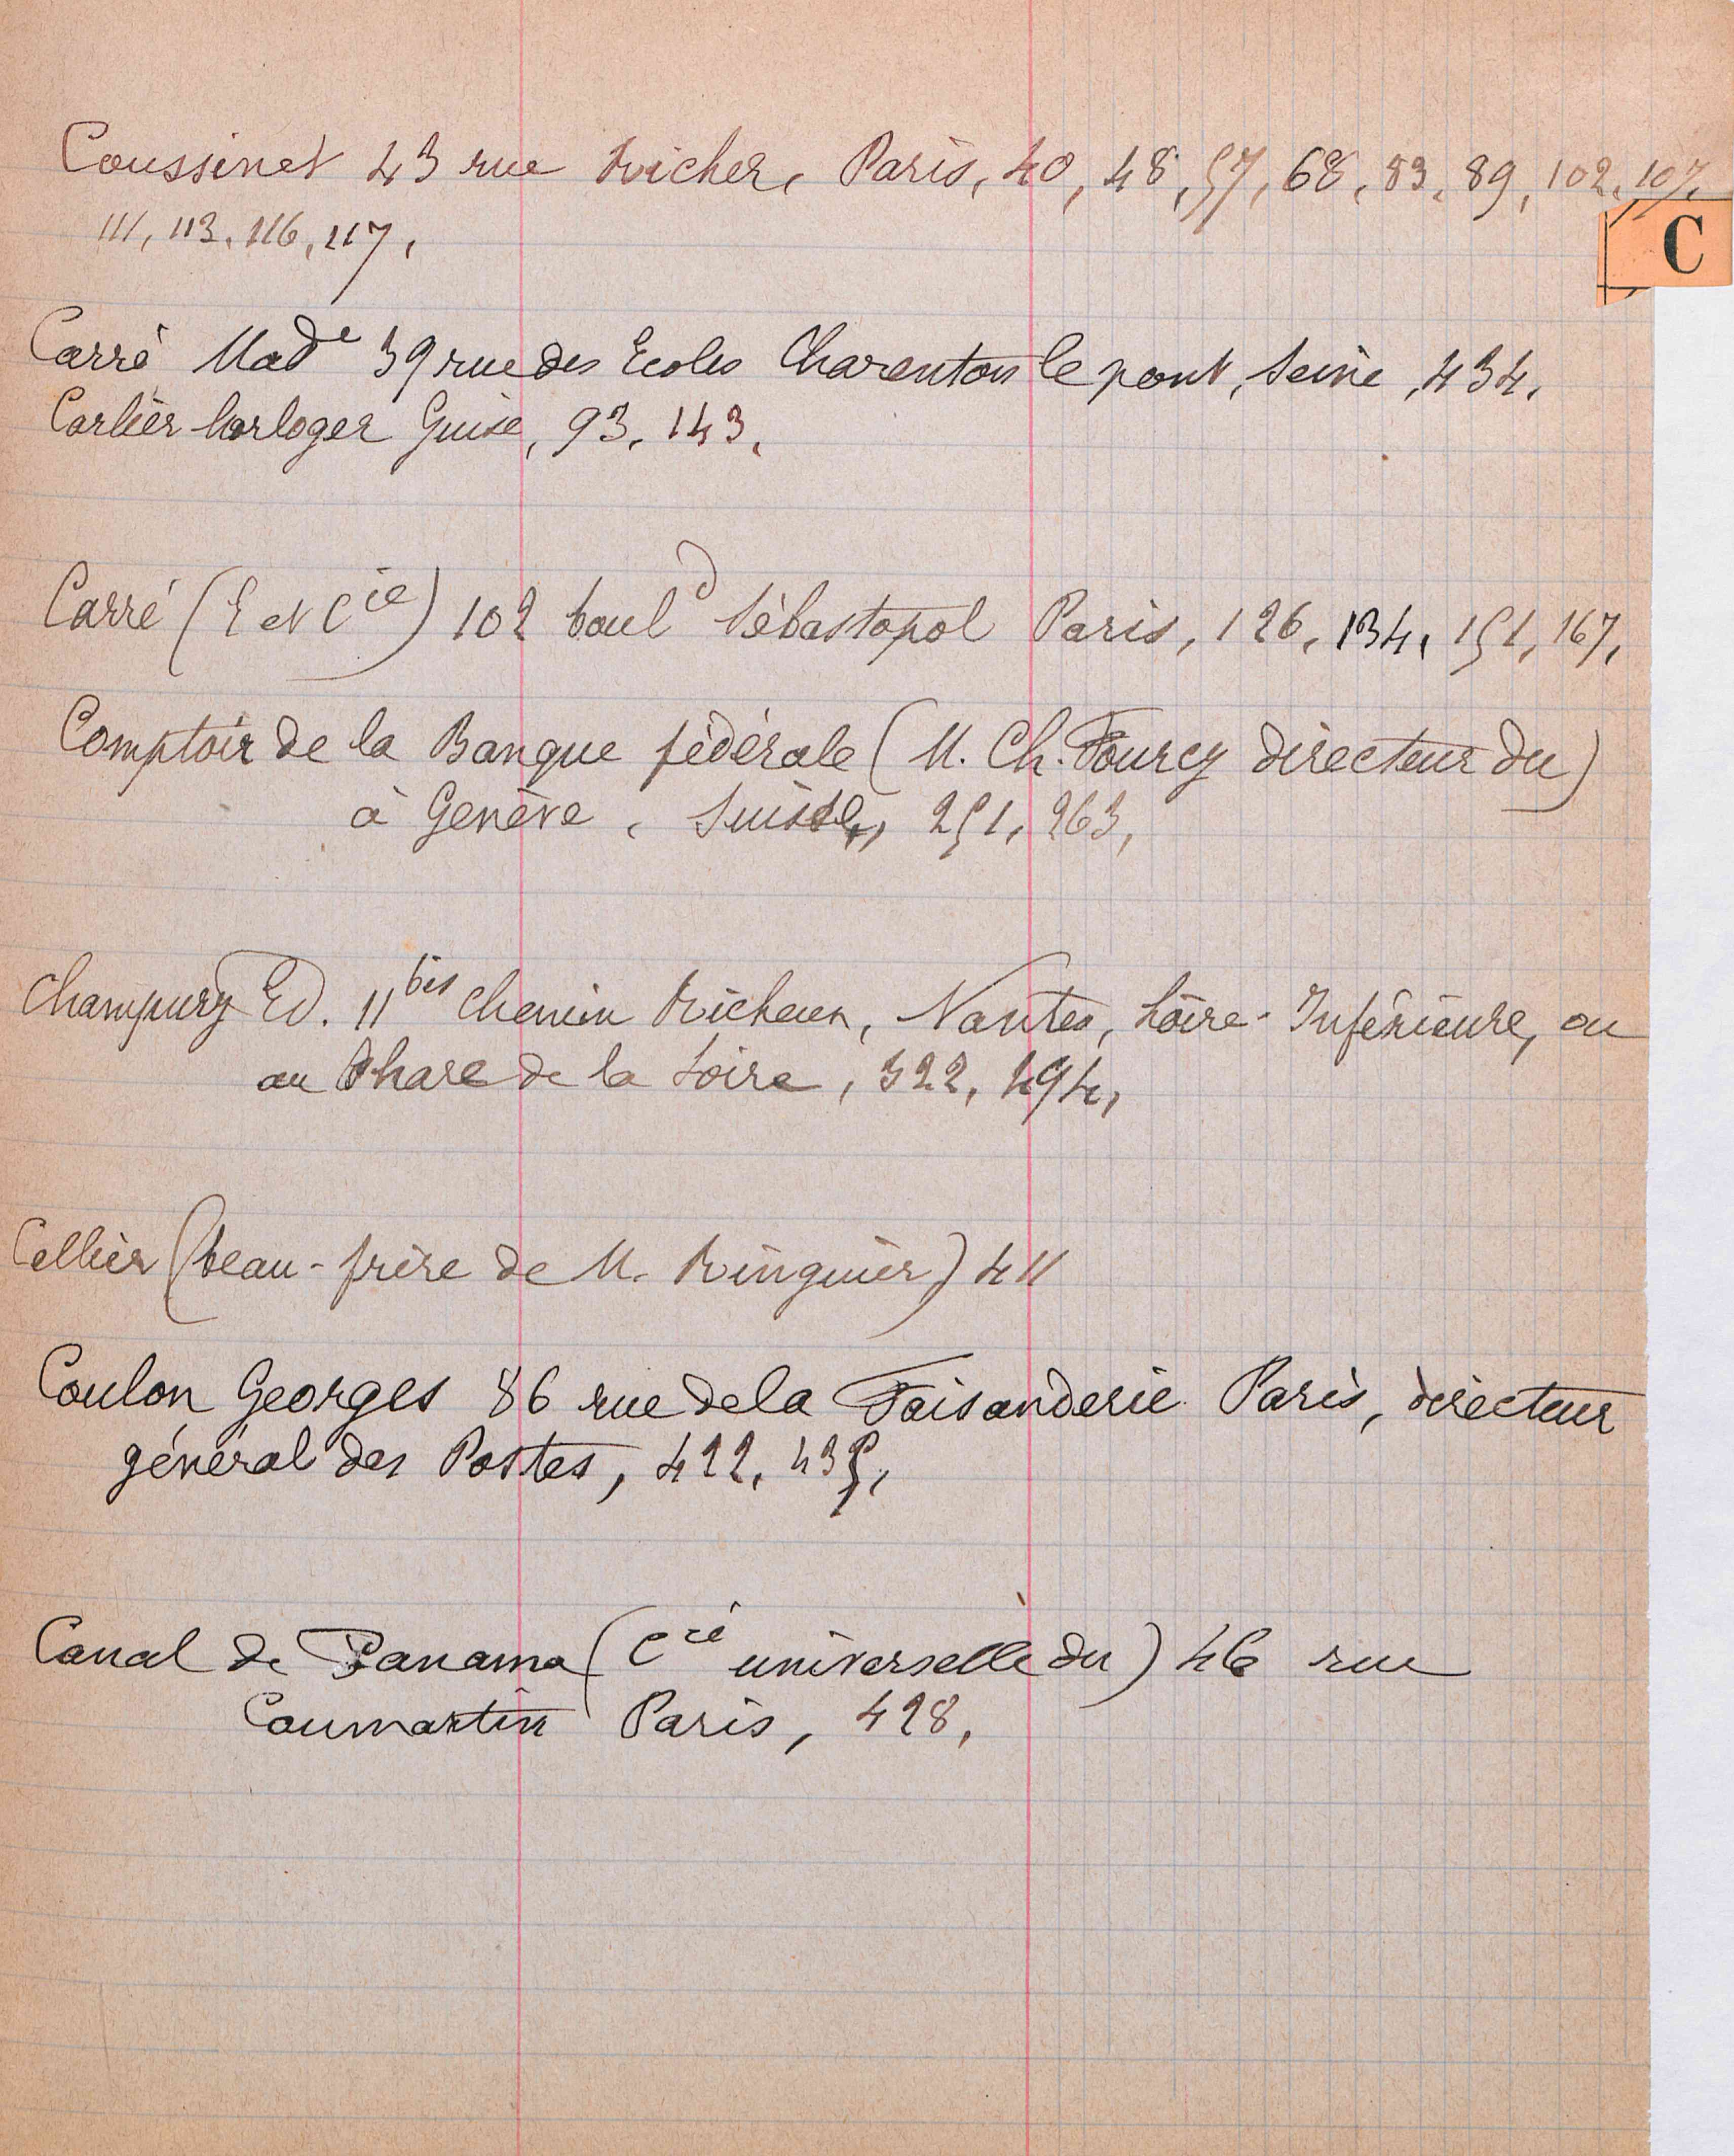 Coussinet 43 rue Richer, Paris, 40, 48, 57, 68, 83, 89, 102, 107,
C
111, 113, 116, 117,
Carré Mad^e 39 rue des Ecoles Charenton le pont, Seine, 434,
Carlier horloger Guise, 93, 143,
Carré (E et C^ie) 102 boul^d Sébastopol Paris, 126, 134, 151, 167,
Comptoir de la Banque fédérale (M. Ch. Fourcy directeur du)
à Genève, Suisse, 251, 263,
Champury Ed. 11^bis chemin Richeux, Nantes, Loire-Inférieure, ou
au Phare de la Loire, 322, 494,
Cellier (beau-frère de M. Ringuier) 411
Coulon Georges 86 rue de la Faisanderie Paris, directeur
général des Postes, 422, 435,
Canal de Panama (C^ie universelle du) 46 rue
Caumartin Paris, 428,